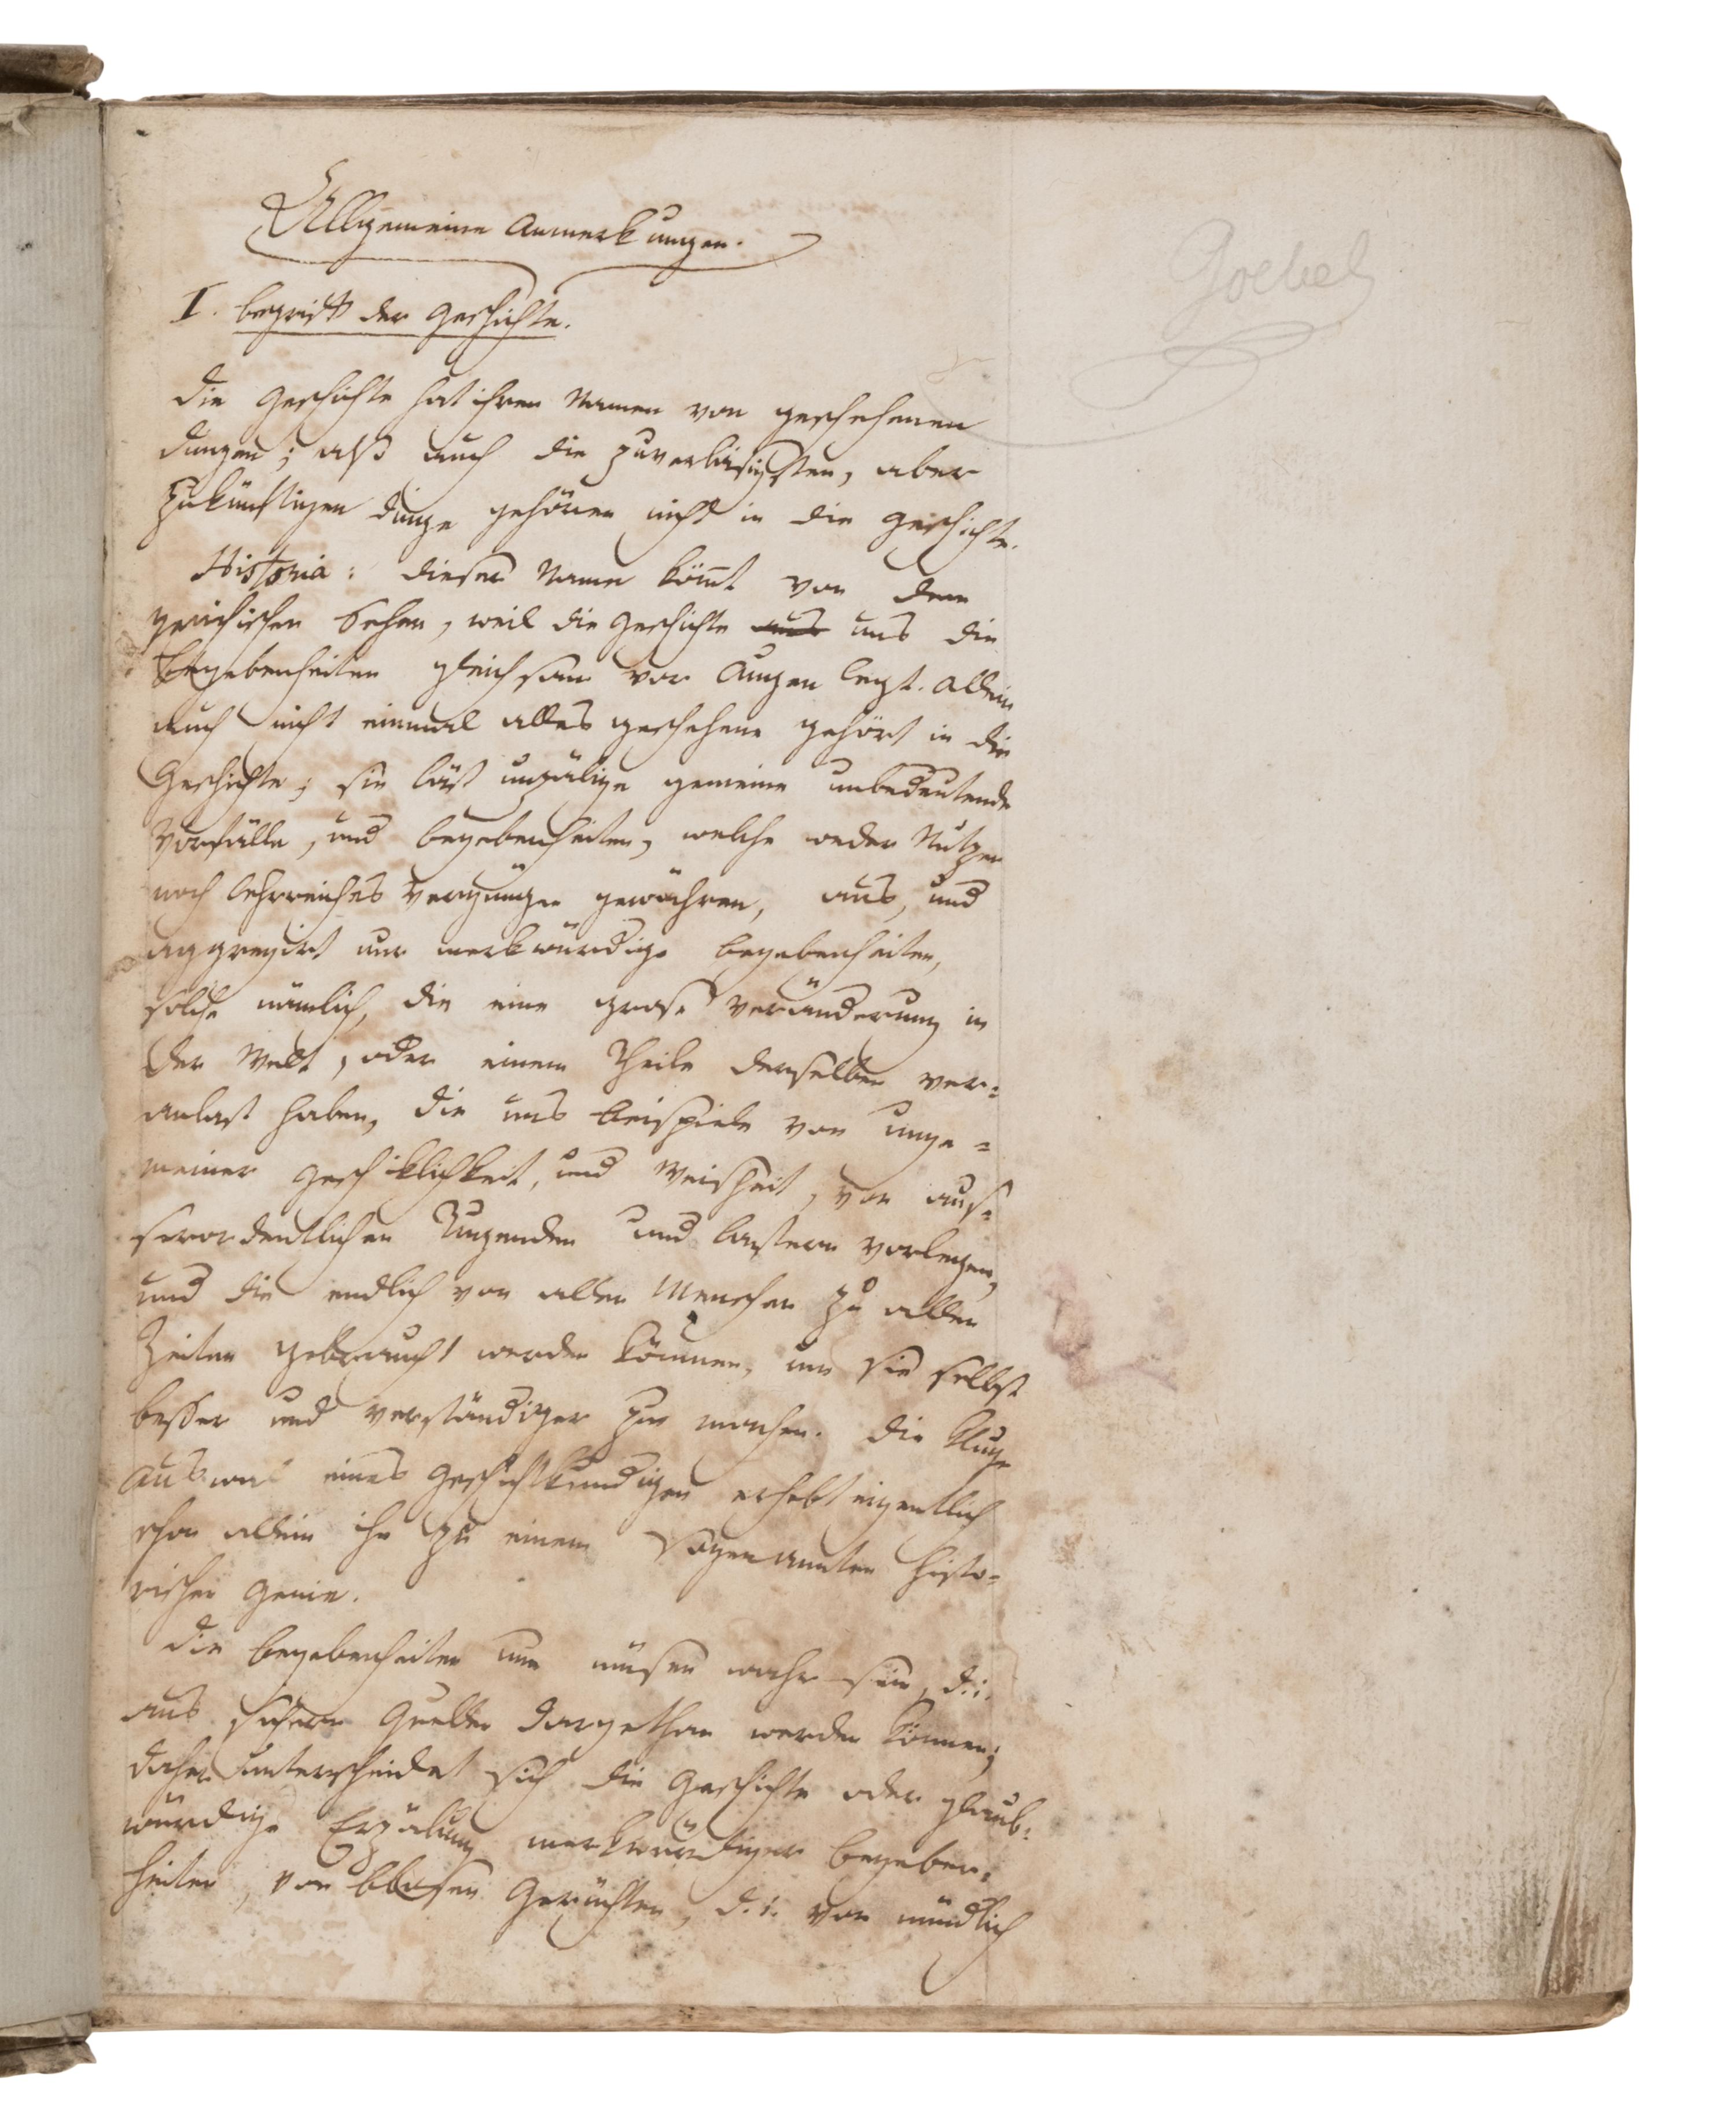 Allgemeine Anmerkungen.
Goebel
I. Begriff der Geschichte.
Die Geschichte hat ihren Namen von geschehenen
Dingen; also auch die zuverläsigsten, aber
zukünftigen Dinge gehören nicht in die Geschichte.
Historia: dieser Name kömt von dem
griechischen Sehen, weil die Geschichte aus uns die
Begebenheiten gleichsam vor Augen legt. Allein
auch nicht einmal alles geschehene gehört in die
Geschichte; sie läst unzälige gemeine unbedeutende
Vorfälle, und Begebenheiten, welche weder Nutzen
noch lehrreiches Vergnügen gewähren, aus, und
aggregirt nur merkwürdige Begebenheiten,
solche nämlich, die eine grose Veränderung in
der Welt, oder einem Theile derselben ver=
anlast haben, die uns Beispiele von unge=
meiner Geschiklichkeit, und Weisheit, von aus=
serordentlichen Tugenden und Lastern vorlegen,
und die endlich von allen Menschen zu allen
Zeiten gebraucht werden können, um sie selbst
besser und verständiger zu machen. Die kluge
Auswal eines Geschichtkundigen erhebt eigentlich
schon allein ihn zu einem sogenannten histo=
rischen Genie.
Die Begebenheiten nun müsen wahr sein, d. i.
aus sichern Quellen dargethan werden können;
daher unterscheidet sich die Geschichte oder glaub=
würdige Erzälung merkwürdiger Begeben=
heiten, von blosen Gerüchten, d. i. von mündlich